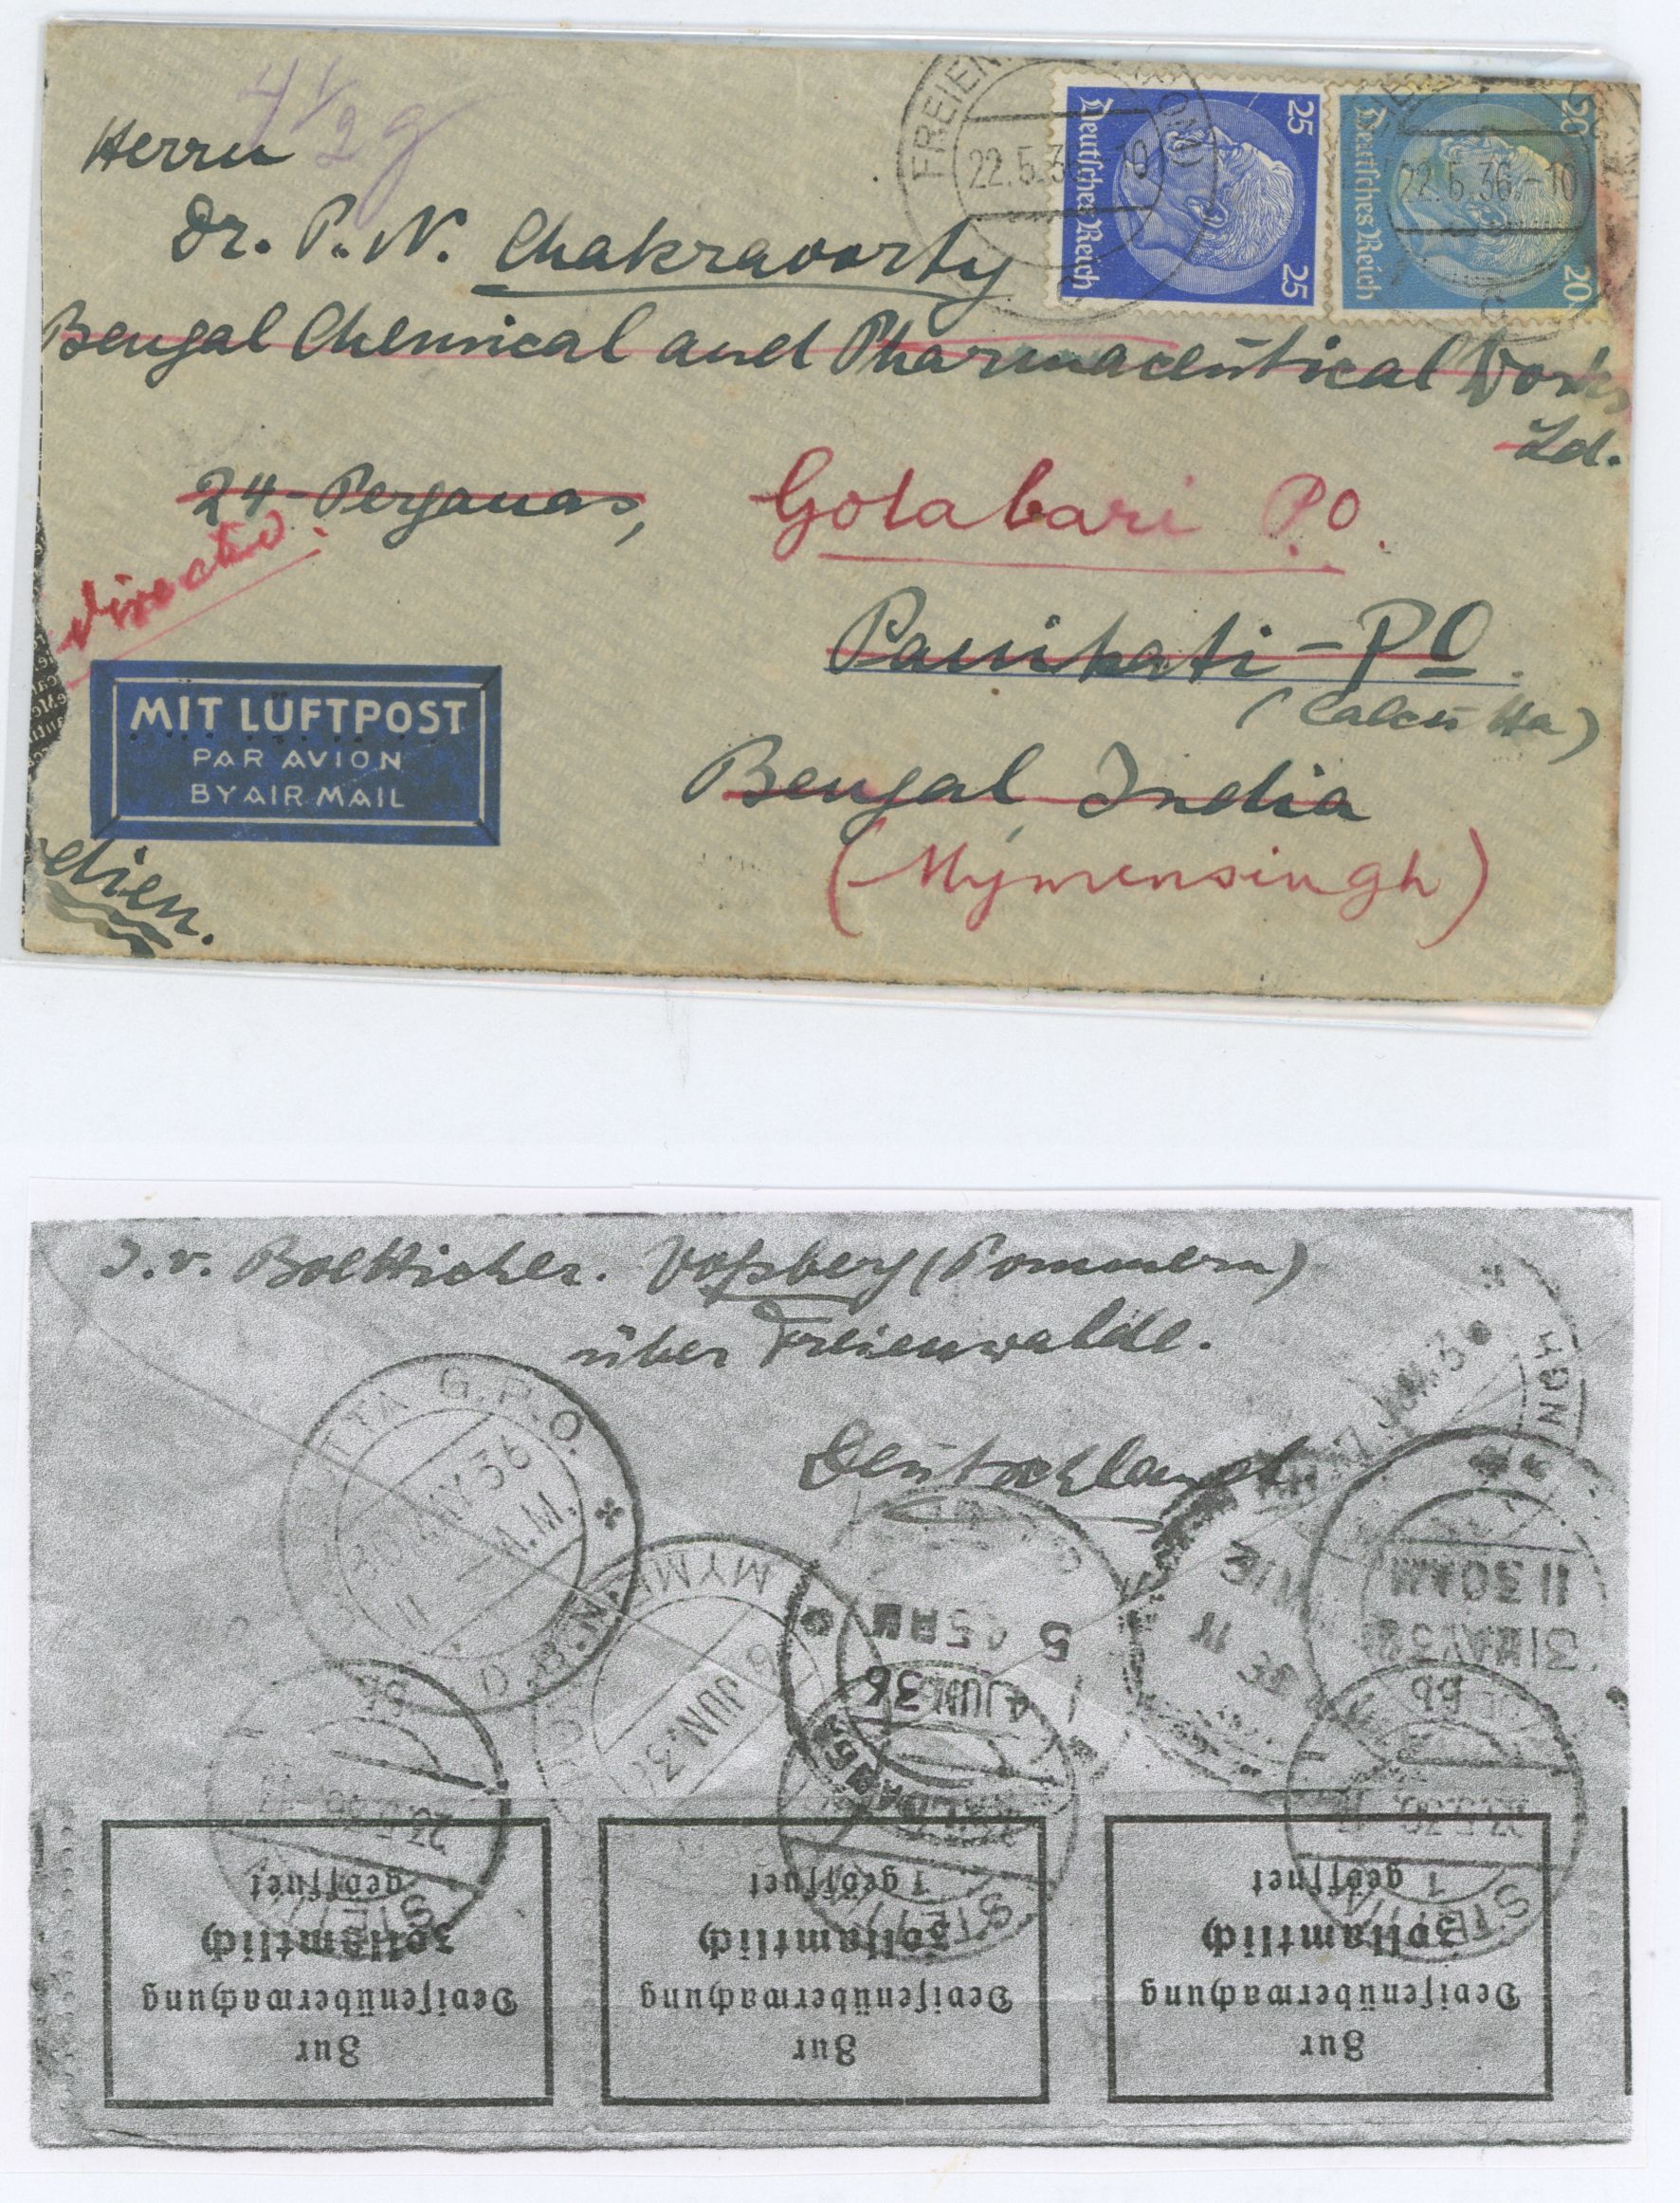 4 1/2 g
Herrn
Dr. P. N. Chakravorty
Bengal Chemical and Pharmaceutical Works
Ld.
24-Perganas,
Golabari PO.
directed.
Panihati-PO.
(Calcutta)
Bengal India
(Mymensingh)
MIT LUFTPOST
PAR AVION
BY AIR MAIL
dien.
22.5.36.-10
Deutsches Reich
25
25
22.5.36.-10
Deutsches Reich
20
20
J. v. Boetticher. Voßberg (Pommern)
über Freienwalde.
Deutschland.
TTA G.P.O.
30 MAY 36
11 - A.M.
MYM
6 JUN. 36
4 JUN 36
11 30 AM
31 MAY 36
STETTIN
STETTIN
STETTIN
Zur
Devisenüberwachung
zollamtlich
geöffnet
Zur
Devisenüberwachung
zollamtlich
geöffnet
Zur
Devisenüberwachung
zollamtlich
geöffnet